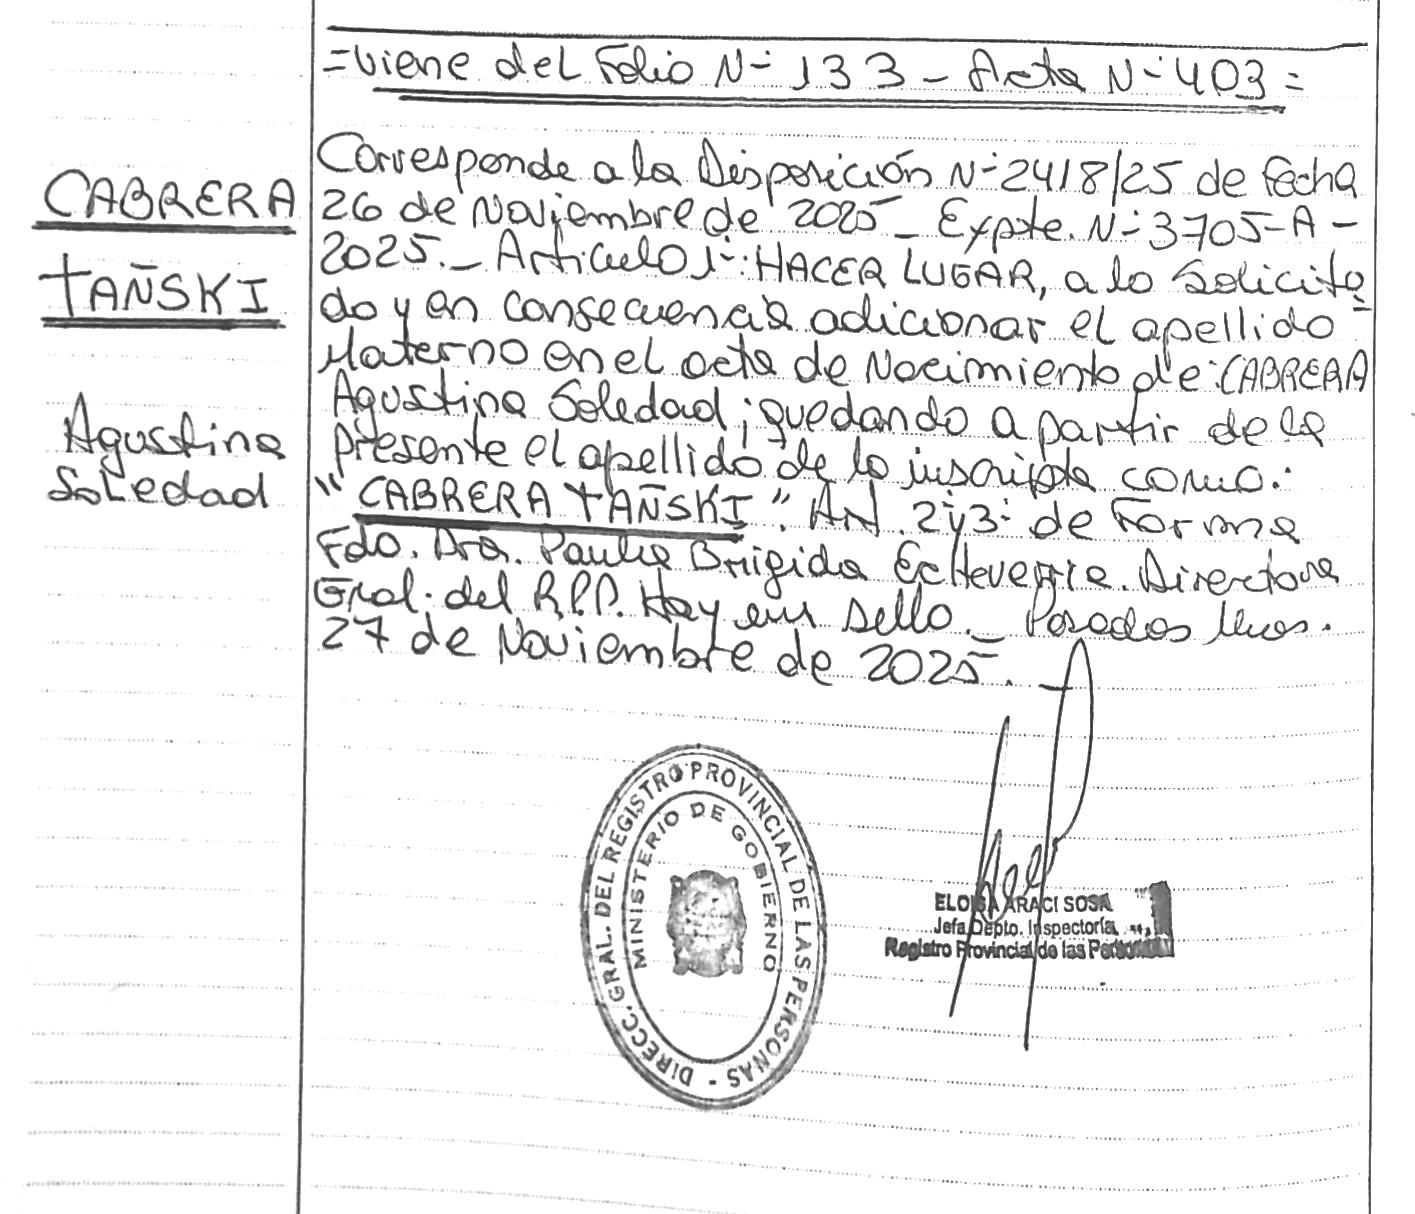 =Viene del Folio N- 133 - Acta N- 403=
CABRERA
TAÑSKI
Agustina
Soledad
Corresponde a la Disposición N- 2418/25 de fecha
26 de Noviembre de 2025 - Expte. N- 3705-A-
2025.- Articulo 1-: HACER LUGAR, a lo Solicita
do y en consecuencia adicionar el apellido
Materno en el acta de Nacimiento de: CABRERA
Agustina Soledad; quedando a partir de la
presente el apellido de la inscripta como:
"CABRERA TAÑSKI". Art. 2-y3- de Forma
Fdo. Dra. Paula Brigida Echeverria. Directora
Gral. del R.P.P. Hay un sello.- Posadas Mnes.
27 de Noviembre de 2025.-
DIRECC. GRAL. DEL REGISTRO PROVINCIAL DE LAS PERSONAS -
MINISTERIO DE GOBIERNO
ELOISA ARACI SOSA
Jefa Depto. Inspectoría
Registro Provincial de las Personas